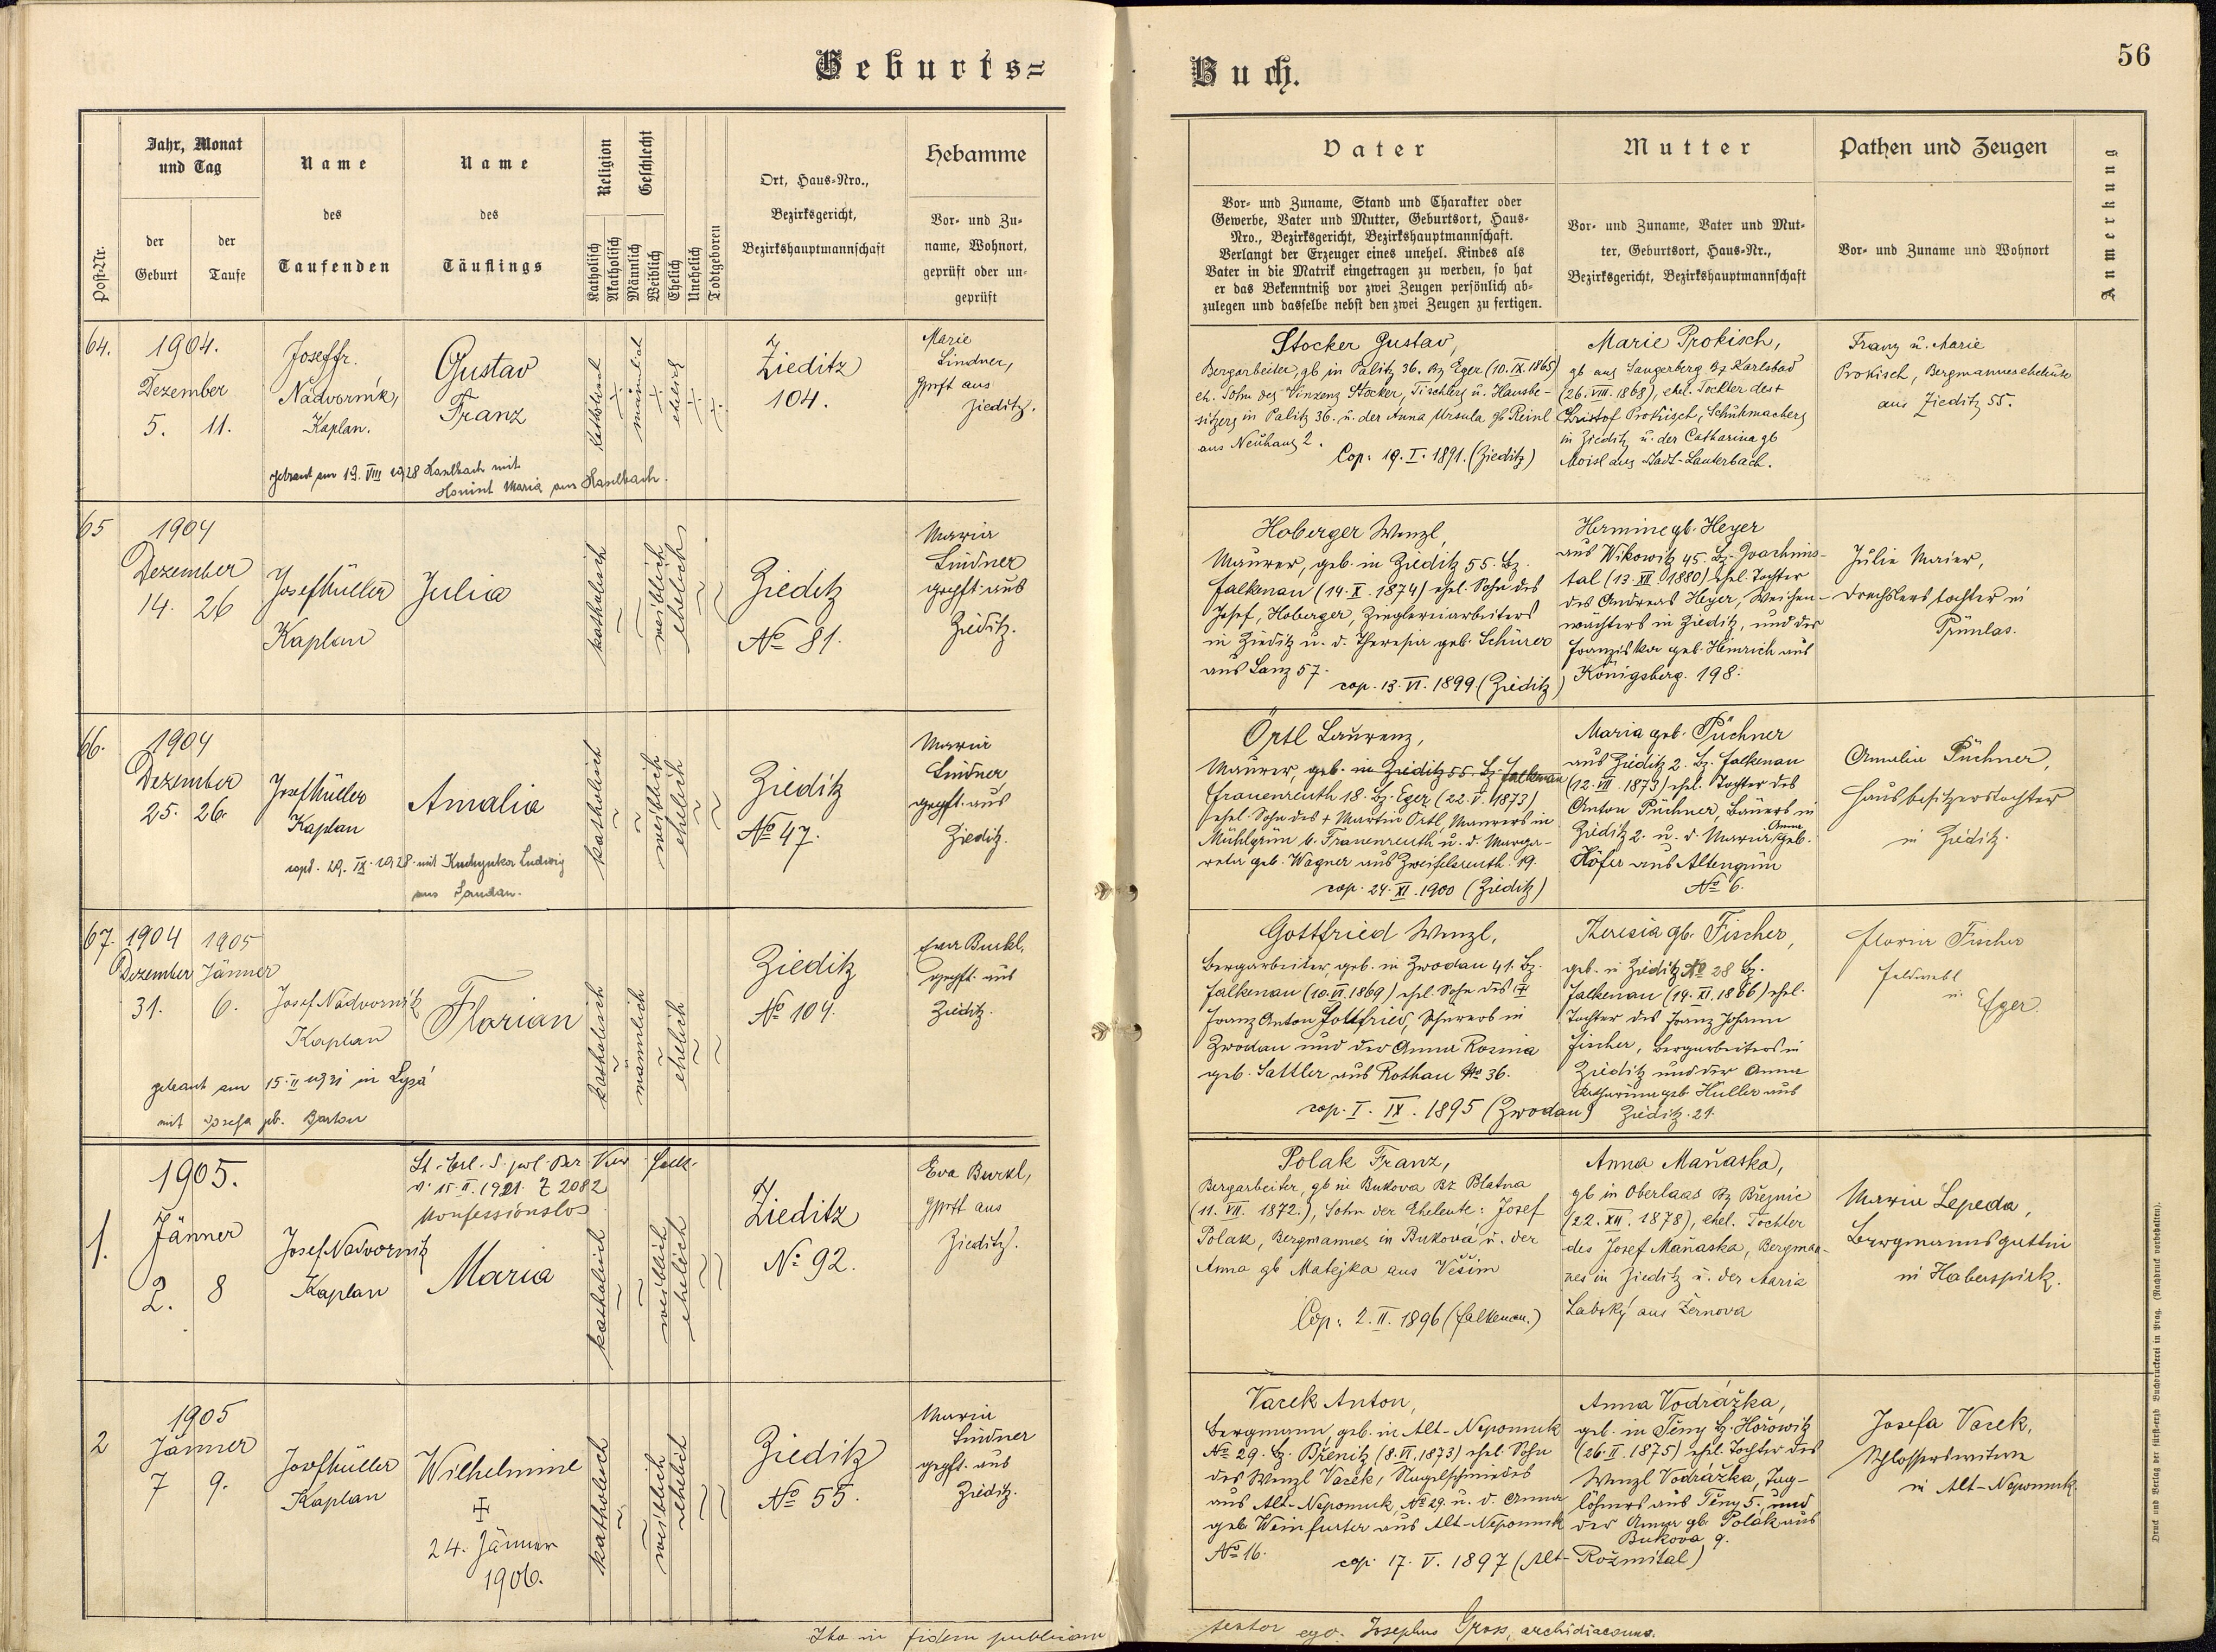 Geburts=
Buch.
56
Post-Nr.
Jahr, Monat
und Tag
der
Geburt
der
Taufe
Name
des
Taufenden
Name
des
Täuflings
Religion
Katholisch
Akatholisch
Geschlecht
Männlich
Weiblich
Ehelich
Unehelich
Todtgeboren
Ort, Haus-Nro.,
Bezirksgericht,
Bezirkshauptmannschaft
Hebamme
Vor- und Zu-
name, Wohnort,
geprüft oder un-
geprüft
Vater
Vor- und Zuname, Stand und Charakter oder
Gewerbe, Vater und Mutter, Geburtsort, Haus-
Nro., Bezirksgericht, Bezirkshauptmannschaft.
Verlangt der Erzeuger eines unehel. Kindes als
Vater in die Matrik eingetragen zu werden, so hat
er das Bekenntniß vor zwei Zeugen persönlich ab-
zulegen und dasselbe nebst den zwei Zeugen zu fertigen.
Mutter
Vor- und Zuname, Vater und Mut-
ter, Geburtsort, Haus-Nr.,
Bezirksgericht, Bezirkshauptmannschaft
Pathen und Zeugen
Vor- und Zuname und Wohnort
Anmerkung
64.
1904.
Dezember
5. 11.
Josef fr.
Nadvornik,
Kaplan.
Gustav
Franz
katholisch
männlich
ehelich
Zieditz
104.
Marie
Lindner,
gprft aus
Zieditz.
getraut am 13. VIII 1928 Haselbach mit
Maria aus Haselbach.
Stocker Gustav,
Bergarbeiter, gb in Palitz 36. Bz Eger (10. IX. 1865)
eh. Sohn des Vinzenz Stocker, Tischlers u. Hausbe-
sitzers in Palitz 36. u. der Anna Ursula gb Reinl
aus Neuhaus 2.
Cop: 19. I. 1891. (Zieditz)
Marie Prokisch,
gb aus Sangerberg Bz Karlsbad
(26. VIII. 1868), ehel. Tochter des †
Christof Prokisch, Schuhmachers
in Zieditz u. der Catharina gb
Moisl aus Stadt-Lauterbach.
Franz u. Marie
Prokisch, Bergmannseheleute
aus Zieditz 55.
65
1904
Dezember
14. 26
Josef Hüller
Kaplan
Julia
katholisch
weiblich
ehelich
Zieditz
No 81.
Maria
Lindner
geprft. aus
Zieditz.
Hoberger Wenzl,
Maurer, geb. in Zieditz 55. Bz.
Falkenau (14. X. 1874) ehel. Sohn des
Josef, Hoberger, Zieglereiarbeiters
in Zieditz u. d. Theresia geb. Schürer
aus Lanz 57.
cop. 13. VI. 1899 (Zieditz)
Hermine gb. Heyer
aus Wikowitz 45. Bz. Joachims-
tal (13. XII. 1880) ehel. Tochter
des Andreas Heyer, Weichen-
wächters in Zieditz, und der
Franziska geb. Heinrich aus
Königsberg. 198.
Julie Maier,
Drechslerstochter in
Prünlas.
66.
1904
Dezember
25. 26.
Josef Hüller
Kaplan
Amalia
katholisch
weiblich
ehelich
Zieditz
No 47.
Maria
Lindner
geprft. aus
Zieditz.
copl. 29. IX. 1928 mit Kuchynka Ludwig
aus Sandau.
Örtl Laurenz,
Maurer, geb. in Zieditz 55. Bz. Falkenau
Frauenreuth 18. Bz. Eger (22. V. 1873)
ehel. Sohn des † Martin Örtl, Maurers in
Mühlgrün b. Frauenreuth u. d. Marga-
reta geb. Wagner aus Zweifelsreuth. 19.
cop. 24. XI. 1900 (Zieditz)
Maria geb. Püchner
aus Zieditz 2. Bz. Falkenau
(12. VII. 1873) ehel. Tochter des
Anton Püchner, Bauers in
Zieditz 2. u. d. Maria Anna geb.
Höfer aus Altengrün
No 6.
Amalia Püchner,
Hausbesitzerstochter
in Zieditz.
67.
1904 1905
Dezember Jänner
31. 6.
Josef Nadvornik
Kaplan
Florian
katholisch
männlich
ehelich
Zieditz
No 104.
Eva Burkl,
geprft. aus
Zieditz.
getraut am 15. II 1931 in Lysá
mit Josefa gb. Barton
Gottfried Wenzl,
Bergarbeiter, geb. in Zwodau 41. Bz.
Falkenau (10. VI. 1869) ehel. Sohn des †
Franz Anton Gottfried, in
Zwodau und der Anna Rosina
geb. Sattler aus Rothau No 36.
cop. I. IX. 1895 (Zwodau)
Theresia gb. Fischer,
geb. in Zieditz No 28 Bz.
Falkenau (14. XI. 1866) ehel.
Tochter des Franz Johann
Fischer, Bergarbeiters in
Zieditz und der Anna
Katharina geb. Hüller aus
Zieditz. 21.
Florian Fischer
Feldwebl
in Eger.
1.
1905.
Jänner
2. 8
Josef Nadvornik
Kaplan
v. 15. II. 1921. Z 2082
konfessionslos
Maria
katholisch
weiblich
ehelich
Zieditz
No 92.
Eva Burkl,
gprft aus
Zieditz.
Polak Franz,
Bergarbeiter, gb in Bukova Bz Blatna
(11. VII. 1872.), Sohn der Eheleute: Josef
Polak, Bergmannes in Bukova u. der
Anna gb Matejka aus Vešin
Cop: 2. II. 1896 (Falkenau.)
Anna Maňaska,
gb in Oberlaas Bz Březnic
(22. XII. 1878), ehel. Tochter
des Josef Maňaska, Bergman-
nes in Zieditz u. der Maria
Labský aus Žernova
Maria Lepeda,
Bergmannsgattin
in Haberspirk.
2
1905
Jänner
7 9.
Josef Hüller
Kaplan
Wilhelmine
24. Jänner
1906.
katholisch
weiblich
ehelich
Zieditz
No 55.
Maria
Lindner
geprft. aus
Zieditz.
Vacek Anton,
Bergmann, geb. in Alt-Nepomuk
No 29. Bz. Břenitz (8. VI. 1873) ehel. Sohn
des Wenzl Vacek, Nagelschmiedes
aus Alt-Nepomuk, No 29. u. d. Anna
geb Weinfurter aus Alt-Nepomuk
No 16.
cop. 17. V. 1897 (Alt-Rožmital)
Anna Vodrážka,
geb. in Těny Bz. Hořowitz
(26. II. 1875) ehel. Tochter des
Wenzl Vodrážka, Tag-
löhners aus Těny 5. und
der Anna gb. Polák aus
Bukova 9.
Josefa Vacek,
in Alt-Nepomuk.
Ita in fidem publicam
testor ego: Josephus Gross, archidiaconus.
Druck und Verlag der fürst-erzb. Buchdruckerei in Prag. (Nachdruck vorbehalten).